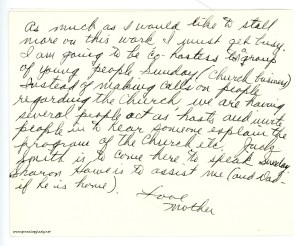 As much as I would like to stall
more on this work I must get busy.
I am going to be Co-hostess to group
of young people Sunday (Church business)
Instead of making calls on people
regarding the Church, we are having
several people act as hosts and invite
people in to hear someone explain the
program of the Church etc. Judy
Smith is to come here to speak Sunday
Sharon Howe is to assist me (and Dad-
if he is home).
Love
Mother